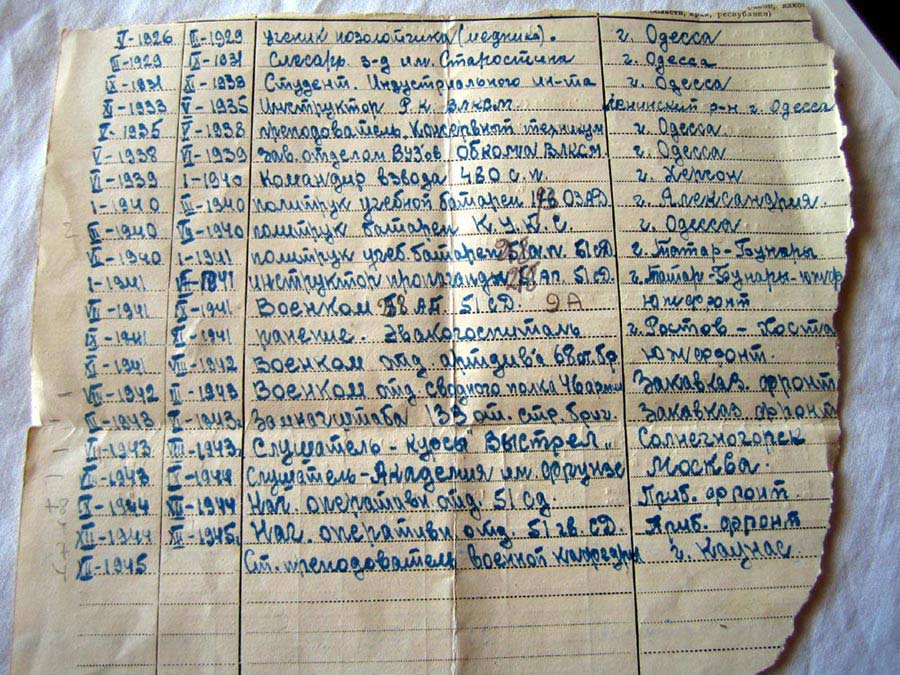 области, края, республики)
V-1926 III-1929 ученик (медника). г. Одесса
III-1929 IX-1931 Слесарь з-д им. Старостина г. Одесса
IX-1931 Студент. Индустриального ин-та г. Одесса
-1933 V-1935 Инструктор Р.К. ВЛКСМ. Ленинский р-н г. Одесса
V-1935 V-1938 преподователь Консервный техникум г. Одесса
V-1938 VI-1939 Зав. отделом ВУЗов Обкома ВЛКСМ г. Одесса
VI-1939 I-1940 Командир взвода 480 с.п. г. Херсон
I-1940 III-1940 политрук учебной батареи ОЗАД г. Александрия.
III-1940 VI-1940 политрук батареи К.У.К.С. г. Одесса
VI-1940 I-1941 политрук учеб. батареи 51 СД г. Татар-Бунары
I-1941 -1941 инструктор пропаганды 51 СД. г. Татар-Бунары-
-1941 -1941 Военком АП 51 СД. 9А Южфронт
-1941 -1941 ранение. Эвакогоспиталь г. Ростов - Хоста
XI-1941 -1942 Военком отд. артдив-а 68 от. бр. Южфронт.
VIII-1942 III-1943 Военком отд. Сводного полка 46 армии Закавказ. фронт
III-1943 V-1943. Зам нач штаба 133 от. стр. бриг. Закавказ. фронт
-1943. -1943. Слушатель - курсы "Выстрел" Солнечногорск
-1943 -1944 Слушатель - Академия им. Фрунзе Москва.
IX-1944 -1944 Нач. оперативн отд. 51 сд. Приб. фронт.
XII-1944 XII-1945. Нач. оперативн отд 51 гв. СД. Приб. фронт
XII-1945 Ст. преподователь военной кафедры г. Каунас.